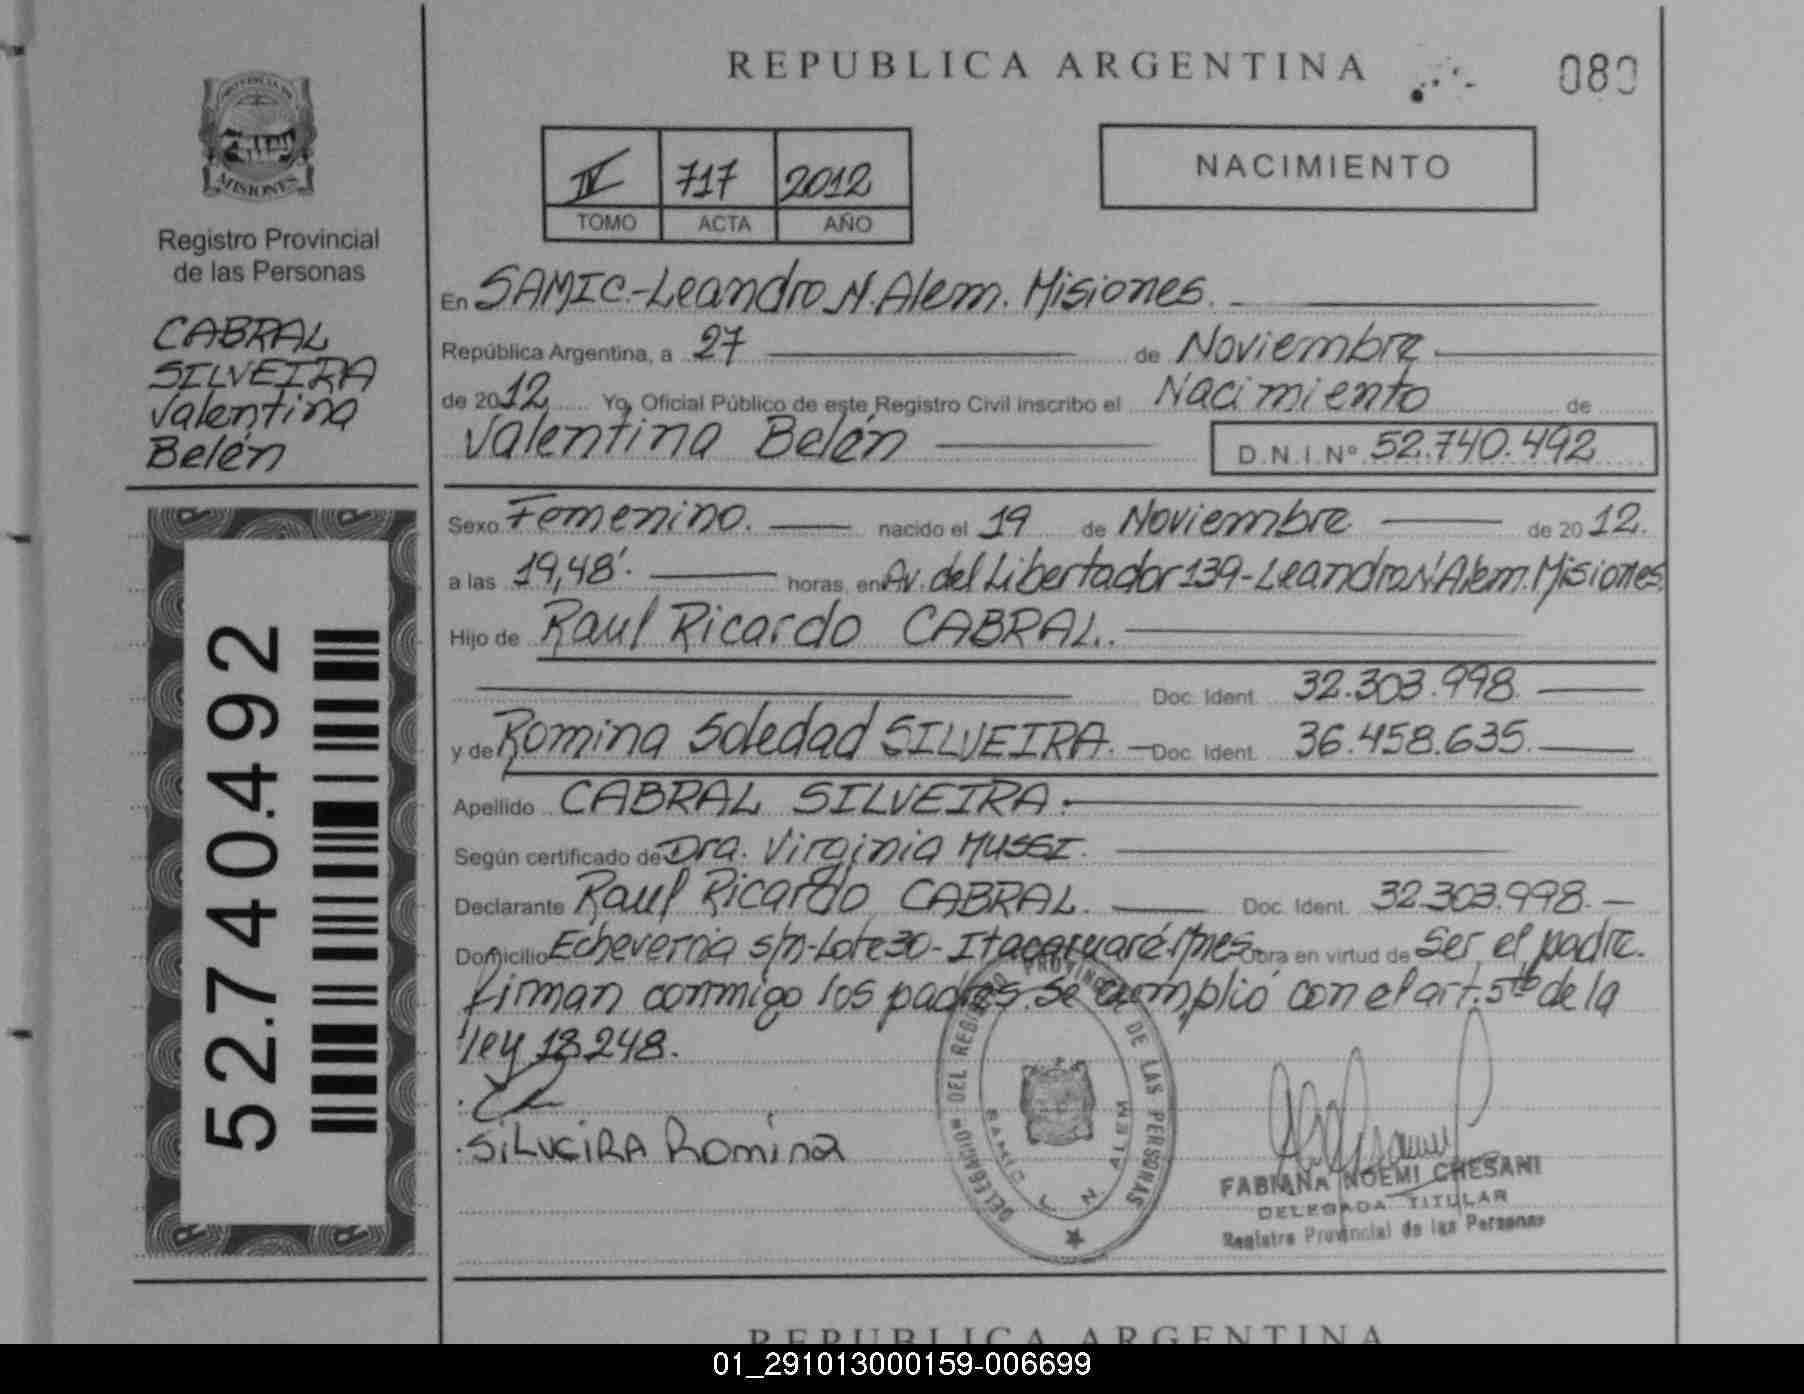 REPUBLICA ARGENTINA
080
PROVINCIA DE
MISIONES
Registro Provincial
de las Personas
CABRAL
SILVEIRA
Valentina
Belén
52.740.492
IV 717 2012
TOMO ACTA AÑO
NACIMIENTO
En SAMIC.-Leandro N. Alem. Misiones.
República Argentina, a 27 de Noviembre
de 2012 Yo, Oficial Público de este Registro Civil inscribo el Nacimiento de
Valentina Belén D.N.I. Nº 52.740.492
Sexo Femenino. nacido el 19 de Noviembre de 2012.
a las 19,48'. horas, en Av. del Libertador 139-Leandro N. Alem. Misiones.
Hijo de Raul Ricardo CABRAL.
Doc. Ident. 32.303.998.
y de Romina Soledad SILVEIRA. Doc. Ident. 36.458.635.
Apellido CABRAL SILVEIRA.
Según certificado de Dra. Virginia MUSSI.
Declarante Raul Ricardo CABRAL. Doc. Ident. 32.303.998.
Domicilio Echeverria s/n-Lote 30- Itacaruaré. Mnes. Obra en virtud de Ser el padre.
firman conmigo los padres. Se cumplió con el art. 5to de la
ley 18.248.
SiLVEiRA Romina
DELEGACION DEL REGISTRO PROVINCIAL DE LAS PERSONAS
L. N. ALEM
FABIANA NOEMI CHESANI
DELEGADA TITULAR
Registro Provincial de las Personas
REPUBLICA ARGENTINA
01_291013000159-006699